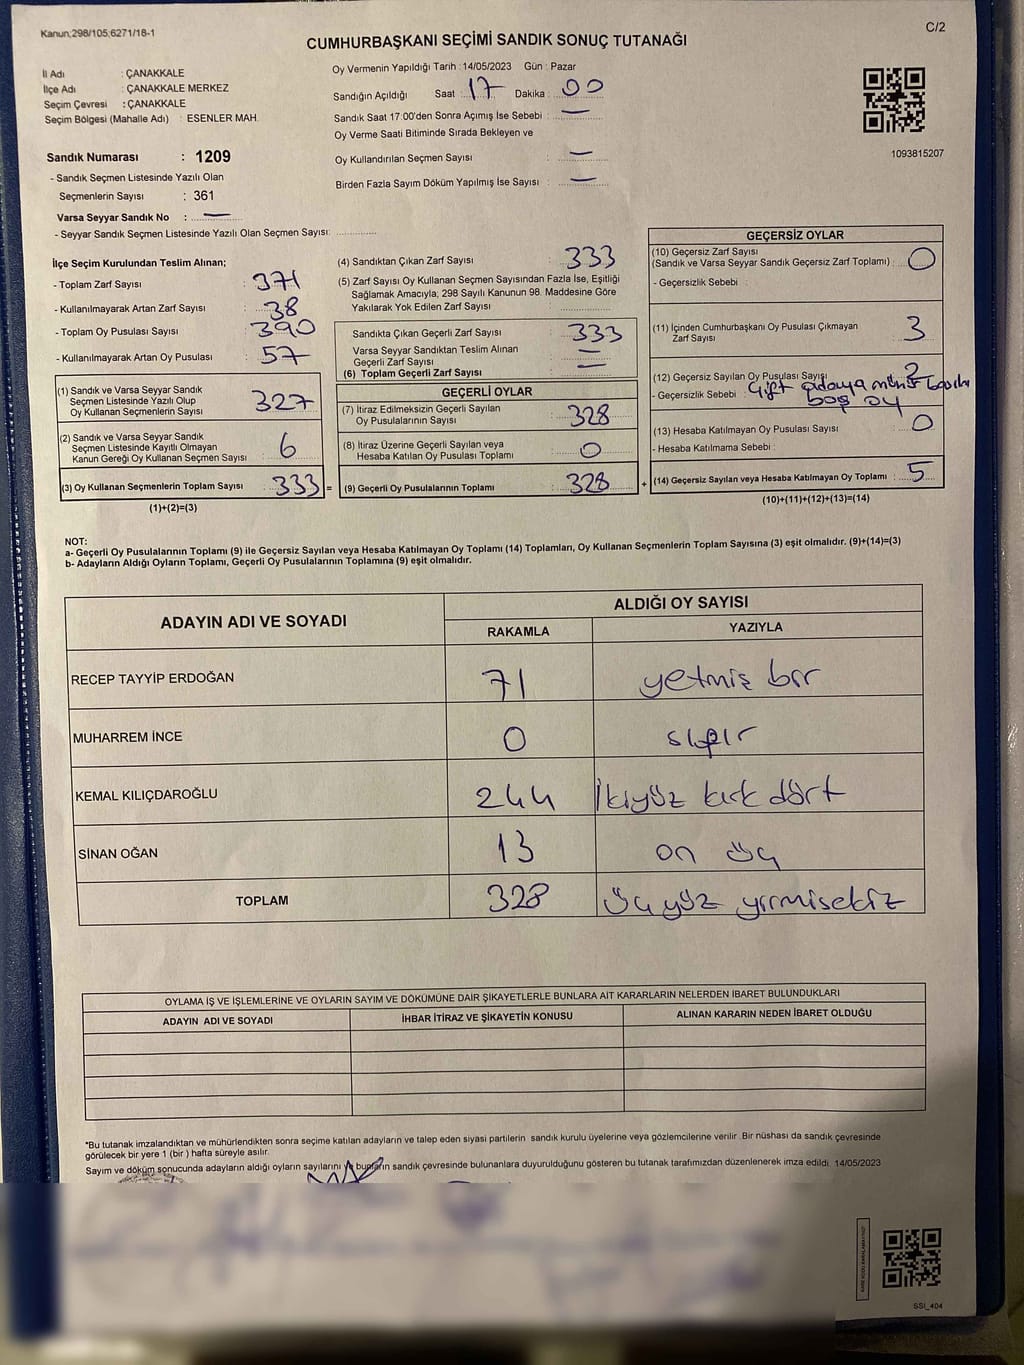 Kanun;298/105;6271/18-1
C/2
CUMHURBAŞKANI SEÇİMİ SANDIK SONUÇ TUTANAĞI
İl Adı : ÇANAKKALE
İlçe Adı : ÇANAKKALE MERKEZ
Seçim Çevresi : ÇANAKKALE
Seçim Bölgesi (Mahalle Adı) : ESENLER MAH.
Sandık Numarası : 1209
- Sandık Seçmen Listesinde Yazılı Olan
Seçmenlerin Sayısı : 361
Varsa Seyyar Sandık No : —
- Seyyar Sandık Seçmen Listesinde Yazılı Olan Seçmen Sayısı:
Oy Vermenin Yapıldığı Tarih : 14/05/2023 Gün : Pazar
Sandığın Açıldığı Saat : 17 Dakika : 00
Sandık Saat 17:00'den Sonra Açımış İse Sebebi : —
Oy Verme Saati Bitiminde Sırada Bekleyen ve
Oy Kullandırılan Seçmen Sayısı : —
Birden Fazla Sayım Döküm Yapılmış İse Sayısı : —
1093815207
İlçe Seçim Kurulundan Teslim Alınan;
- Toplam Zarf Sayısı : 371
- Kullanılmayarak Artan Zarf Sayısı : 38
- Toplam Oy Pusulası Sayısı : 390
- Kullanılmayarak Artan Oy Pusulası : 57
(1) Sandık ve Varsa Seyyar Sandık
Seçmen Listesinde Yazılı Olup
Oy Kullanan Seçmenlerin Sayısı : 327
(2) Sandık ve Varsa Seyyar Sandık
Seçmen Listesinde Kayıtlı Olmayan
Kanun Gereği Oy Kullanan Seçmen Sayısı : 6
(3) Oy Kullanan Seçmenlerin Toplam Sayısı : 333 =
(1)+(2)=(3)
(4) Sandıktan Çıkan Zarf Sayısı : 333
(5) Zarf Sayısı Oy Kullanan Seçmen Sayısından Fazla İse, Eşitliği
Sağlamak Amacıyla, 298 Sayılı Kanunun 98. Maddesine Göre
Yakılarak Yok Edilen Zarf Sayısı :
Sandıkta Çıkan Geçerli Zarf Sayısı : 333
Varsa Seyyar Sandıktan Teslim Alınan
Geçerli Zarf Sayısı : —
(6) Toplam Geçerli Zarf Sayısı : —
GEÇERLİ OYLAR
(7) İtiraz Edilmeksizin Geçerli Sayılan
Oy Pusulalarının Sayısı : 328
(8) İtiraz Üzerine Geçerli Sayılan veya
Hesaba Katılan Oy Pusulası Toplamı : 0
(9) Geçerli Oy Pusulalarının Toplamı : 328 +
GEÇERSİZ OYLAR
(10) Geçersiz Zarf Sayısı
(Sandık ve Varsa Seyyar Sandık Geçersiz Zarf Toplamı) : 0
- Geçersizlik Sebebi :
(11) İçinden Cumhurbaşkanı Oy Pusulası Çıkmayan
Zarf Sayısı : 3
(12) Geçersiz Sayılan Oy Pusulası Sayısı : 2
- Geçersizlik Sebebi : Çift adaya mühür
boş oy
(13) Hesaba Katılmayan Oy Pusulası Sayısı : 0
- Hesaba Katılmama Sebebi :
(14) Geçersiz Sayılan veya Hesaba Katılmayan Oy Toplamı : 5
(10)+(11)+(12)+(13)=(14)
NOT:
a- Geçerli Oy Pusulalarının Toplamı (9) ile Geçersiz Sayılan veya Hesaba Katılmayan Oy Toplamı (14) Toplamları, Oy Kullanan Seçmenlerin Toplam Sayısına (3) eşit olmalıdır. (9)+(14)=(3)
b- Adayların Aldığı Oyların Toplamı, Geçerli Oy Pusulalarının Toplamına (9) eşit olmalıdır.
ADAYIN ADI VE SOYADI
ALDIĞI OY SAYISI
RAKAMLA YAZIYLA
RECEP TAYYİP ERDOĞAN 71 yetmiş bir
MUHARREM İNCE 0 sıfır
KEMAL KILIÇDAROĞLU 244 İkiyüz kırk dört
SİNAN OĞAN 13 on üç
TOPLAM 328 üçyüz yirmisekiz
OYLAMA İŞ VE İŞLEMLERİNE VE OYLARIN SAYIM VE DÖKÜMÜNE DAİR ŞİKAYETLERLE BUNLARA AİT KARARLARIN NELERDEN İBARET BULUNDUKLARI
ADAYIN ADI VE SOYADI İHBAR İTİRAZ VE ŞİKAYETİN KONUSU ALINAN KARARIN NEDEN İBARET OLDUĞU
*Bu tutanak imzalandıktan ve mühürlendikten sonra seçime katılan adayların ve talep eden siyasi partilerin sandık kurulu üyelerine veya gözlemcilerine verilir. Bir nüshası da sandık çevresinde
görülecek bir yere 1 (bir ) hafta süreyle asılır.
Sayım ve döküm sonucunda adayların aldığı oyların sayılarını ve bunların sandık çevresinde bulunanlara duyurulduğunu gösteren bu tutanak tarafımızdan düzenlenerek imza edildi. 14/05/2023
SSI_404